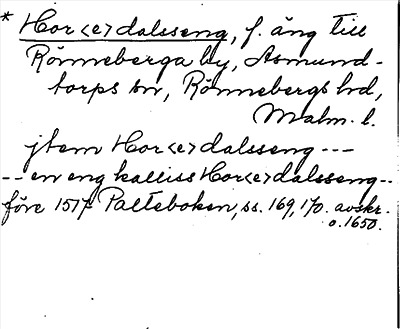 * Hor<e>dalsseng, f. äng till
Rönneberga by, Asmund-
torps sn, Rönnebergs hd,
Malm. l.
jtem Hor<e>dalsseng ---
-- en eng kalliss Hor<e>dalsseng--
före 1517 Palteboken, ss. 169, 170. avskr.
o. 1650.